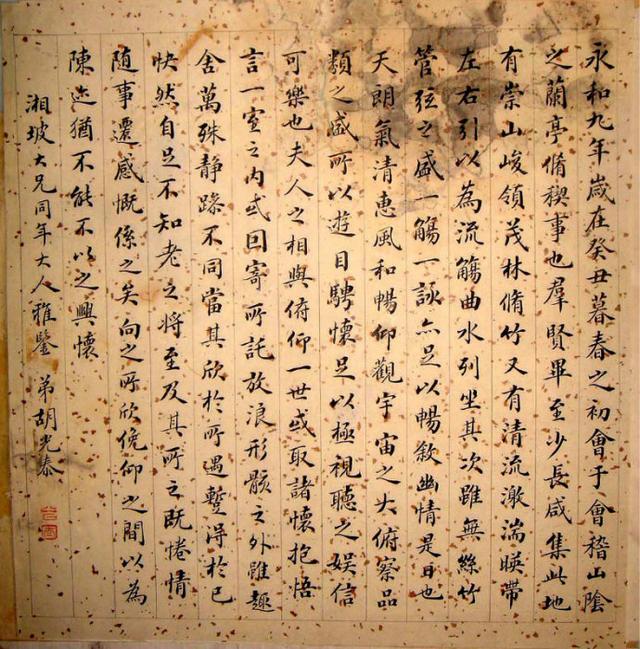 永和九年歲在癸丑暮春之初會于會稽山陰
之蘭亭脩稧事也羣賢畢至少長咸集此地
有崇山峻領茂林脩竹又有清流激湍暎帶
左右引以為流觴曲水列坐其次雖無絲竹
管弦之盛一觴一詠亦足以暢敘幽情是日也
天朗氣清惠風和暢仰觀宇宙之大俯察品
類之盛所以遊目騁懷足以極視聽之娛信
可樂也夫人之相與俯仰一世或取諸懷抱悟
言一室之內或因寄所託放浪形骸之外雖趣
舍萬殊静躁不同當其欣於所遇蹔得於己
快然自足不知老之將至及其所之既惓情
随事遷感慨係之矣向之所欣俛仰之間以為
陳迹猶不能不以之興懷
湘坡大兄同年大人雅鑒 弟胡光泰